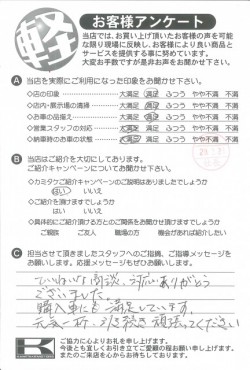 軽
お客様アンケート
当店では、お買い上げ頂いたお客様の声を可能
な限り現場に反映し、お客様により良い商品と
サービスを提供する事に努めています。
大変お手数ですが是非お声をお聞かせ下さい。
A 当店を実際にご利用になった印象をお聞かせ下さい。
◇店の印象 大満足 満足 ふつう やや不満 不満
◇店内・展示場の清掃 大満足 満足 ふつう やや不満 不満
◇お車の品揃え 大満足 満足 ふつう やや不満 不満
◇営業スタッフの対応 大満足 満足 ふつう やや不満 不満
◇納車時のお車の状態 大満足 満足 ふつう やや不満 不満
B 当店はご紹介を大切にしております。
ご紹介キャンペーンについてお聞かせ下さい。
◇カミタケご紹介キャンペーンのご説明はありましたでしょうか
はい いいえ
◇ご紹介を頂けますでしょうか
はい いいえ
◇具体的にご紹介頂ける方とのご関係をお聞かせ頂けますでしょうか
ご親族 ご友人 職場の方 機会があれば紹介したい
C 担当させて頂きましたスタッフへのご指摘、ご指導メッセージを
お願いします。応援メッセージもぜひお願いします。
ていねいな商談、対応ありがとう
ございました。
購入車にも満足しています。
元気一杯、引き続き頑張ってください
ご協力に心よりお礼を申し上げます。
今後とも宜しくお引き立てご愛顧の程お願い申し上げます。
またのご来店を心からお待ちしております。